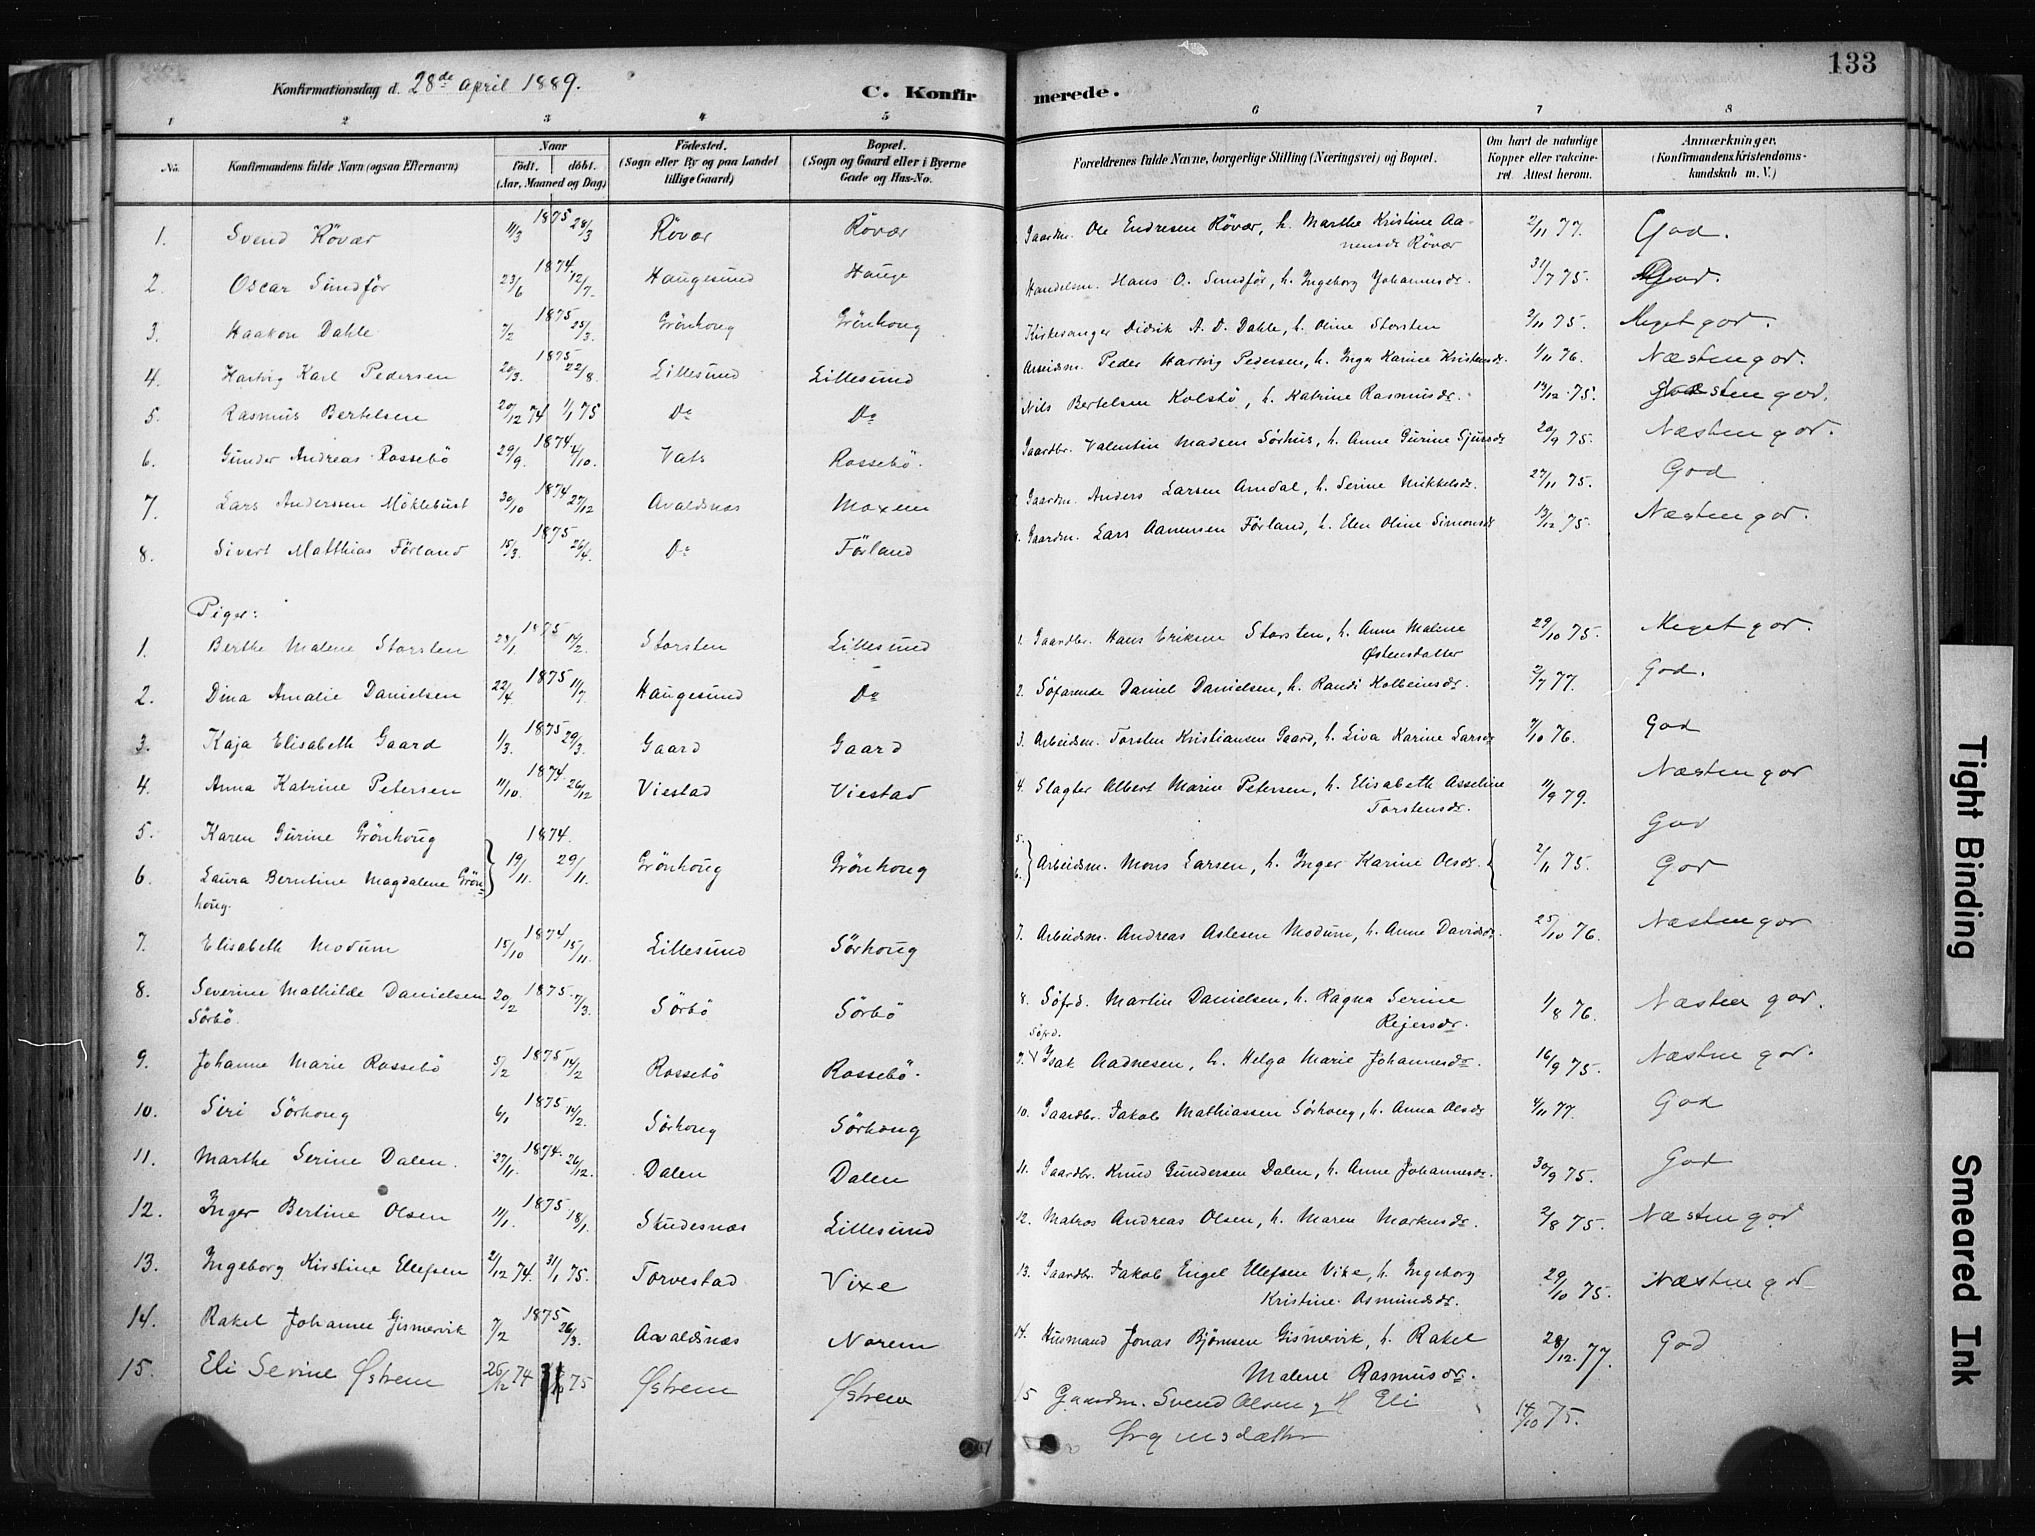 133
Konfirmationsdag d. 28de April 1889.
C. Konfirmerede.
1 2 3 4 5 6 7 8
No. Konfirmandens fulde Navn (ogsaa Efternavn) Naar født. døbt. (Aar, Maaned og Dag) Fødested. (Sogn eller By og paa Landet tillige Gaard) Bopæl. (Sogn og Gaard eller i Byerne Gade og Hus-No. Forældrenes fulde Navne, borgerlige Stilling (Næringsvei) og Bopæl. Om havt de naturlige Kopper eller vakcineret. Attest herom. Anmærkninger. (Konfirmandens Kristendomskundskab m. V.)
1. Svend Røvær 11/3 1875 28/3 Røvær Røvær Gaardm. Ole Endresen Røvær, h. Marthe Kristine Aanensdr Røvær 2/11 77. God.
2. Oscar Sundfør 23/6 1874. 12/7. Haugesund Hauge Handelsm. Hans O. Sundfør, h. Ingeborg Johannesdr. 31/7 75. God.
3. Haakon Dahle 7/2 1875 25/3. Grønhoug Grønhoug Kirkesanger Didrik A. D. Dahle, h. Oline Storsten 2/11 75. Meget god.
4. Hartvig Karl Pedersen 20/3. 1875 22/8. Lillesund Lillesund Arbeidsm. Peder Hartvig Pedersen, h. Inga Karine Kristensdr. 1/11 76. Næsten god.
5. Rasmus Bertelsen 20/12 74 1/1 75 Do Do Nils Bertelsen Kolstø, h. Katrine Rasmusdr. 13/12. 75. Næsten god.
6. Gunder Andreas Rossebø 29/9. 1874. 4/10. Vats Rossebø. Gaardbr. Valentin Madsen Sørhus, h. Anne Gurine Sjursdr 20/9 75. Næsten god.
7. Lars Anderssen Møklebust 30/10 1874 27/12 Avaldsnæs Moxem Gaardm. Anders Larsen Amdal, h. Serine Mikkelsdr. 27/11 75. God
8. Sivert Matthias Førland 15/3. 1875 26/4. Do Førland Gaardm. Lars Aamensen Førland, h. Elen Oline Simonsdr 13/12 75. Næsten god.
Piger:
1. Berthe Malene Storsten 23/1. 1875 14/2. Storsten Lillesund 1. Gaardbr. Hans Eriksen Storsten, h. Anne Maline Østensdatter 29/10 75. Meget god.
2. Dina Amalie Danielsen 22/4 1875 11/7. Haugesund Do 2. Søfarende Daniel Danielsen, h. Randi Kolbeinsdr. 2/7 77. God.
3. Kaja Elisabeth Gaard 1/3. 1875 29/3. Gaard Gaard 3. Arbeidsm. Torsten Kristiansen Gaard, h. Liva Karine Larsdr 7/10 76. God
4. Anna Katrine Petersen 11/10. 1874. 26/12 Viestad Viestad 4. Slagter Albert Marin Petersen, h. Elisabeth Asseline Torstensdr. 11/9 79. Næsten god
5. Karen Gurine Grønhoug God
6. Laura Berntine Magdalene Grønhoug. 19/11. 1874. 29/11. Grønhoug Grønhoug 5. 6. Arbeidsm. Mons Larsen, h. Inger Karine Olsdr. 2/11 75. God
7. Elisabeth Modum 15/10 1874 15/11. Lillesund Sørhoug 7. Arbeidsm. Andreas Aslesen Modum, h. Anne Davidsdr. 25/10 76. Næsten god
8. Severine Mathilde Danielsen Sørbø. 20/2 1875. 7/3. Sørbø Sørbø 8. Søfrd. Martin Danielsen, h. Ragna Serine Rejersdr. 1/8 76. Næsten god.
9. Johanne Marie Rossebø 5/2 1875 14/2 Rossebø Rossebø. 9. Søfrd. Isak Aadnesen, h. Helga Marie Johannesdr. 16/9 75. Næsten god.
10. Siri Sørhoug 6/1 1875 14/2. Sørhoug Sørhoug 10. Gaardbr. Jakob Mathiassen Sørhoug, h. Anna Olsdr 4/11 77. God
11. Marthe Serine Dalen. 27/11. 1874. 26/12. Dalen Dalen 11. Gaardbr. Knud Gundersen Dalen, h. Anne Johannesdr. 30/9 75. God
12. Inger Bertine Olsen 11/1. 1875 18/1. Skudesnæs Lillesund 12. Matros Andreas Olsen, h. Maren Markusdr. 2/8 75. Næsten god
13. Ingeborg Kirstine Ellefsen 2/12 74. 31/1 75. Torvestad Vixe 13. Gaardbr. Jakob Engel Ellefsen Vixe, h. Ingeborg Kristine Asmundsdr. 29/10 75. Næsten god
14. Rakel Johanne Gismervik 7/2 1875 26/3. Avaldsnæs Norem 14. Husmand Jonas Bjørnsen Gismervik, h. Rakel Malene Rasmusdr. 28/12. 77. God
15. Eli Sevine Østrem 26/12 74 75 Østrem Østrem 15 Gaardm. Svend Olsen og H Eli 14/10 75.
Tight Binding
Smeared Ink